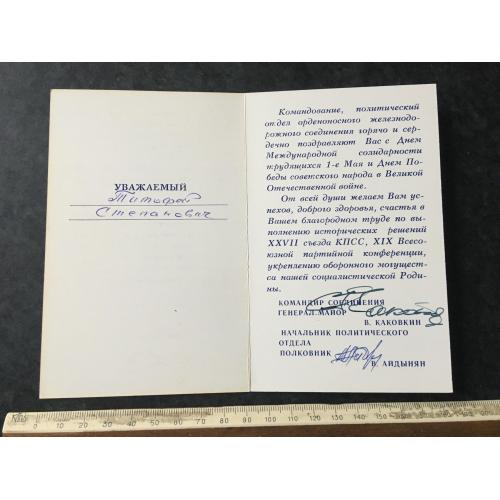 УВАЖАЕМЫЙ
Тимофей
Степанович
Командование, политический
отдел орденоносного железнодо-
рожного соединения горячо и сер-
дечно поздравляют Вас с Днем
Международной солидарности
трудящихся 1-е Мая и Днем По-
беды советского народа в Великой
Отечественной войне.
От всей души желаем Вам ус-
пехов, доброго здоровья, счастья в
Вашем благородном труде по вы-
полнению исторических решений
XXVII съезда КПСС, XIX Всесо-
юзной партийной конференции,
укреплению оборонного могущест-
ва нашей социалистической Роди-
ны.
КОМАНДИР СОЕДИНЕНИЯ
ГЕНЕРАЛ-МАЙОР
В. КАКОВКИН
НАЧАЛЬНИК ПОЛИТИЧЕСКОГО
ОТДЕЛА
ПОЛКОВНИК
В. АЙДЫНЯН
0 10 20 30 40 50 60 70 80 90 100 110 120 130 140 150 160 170